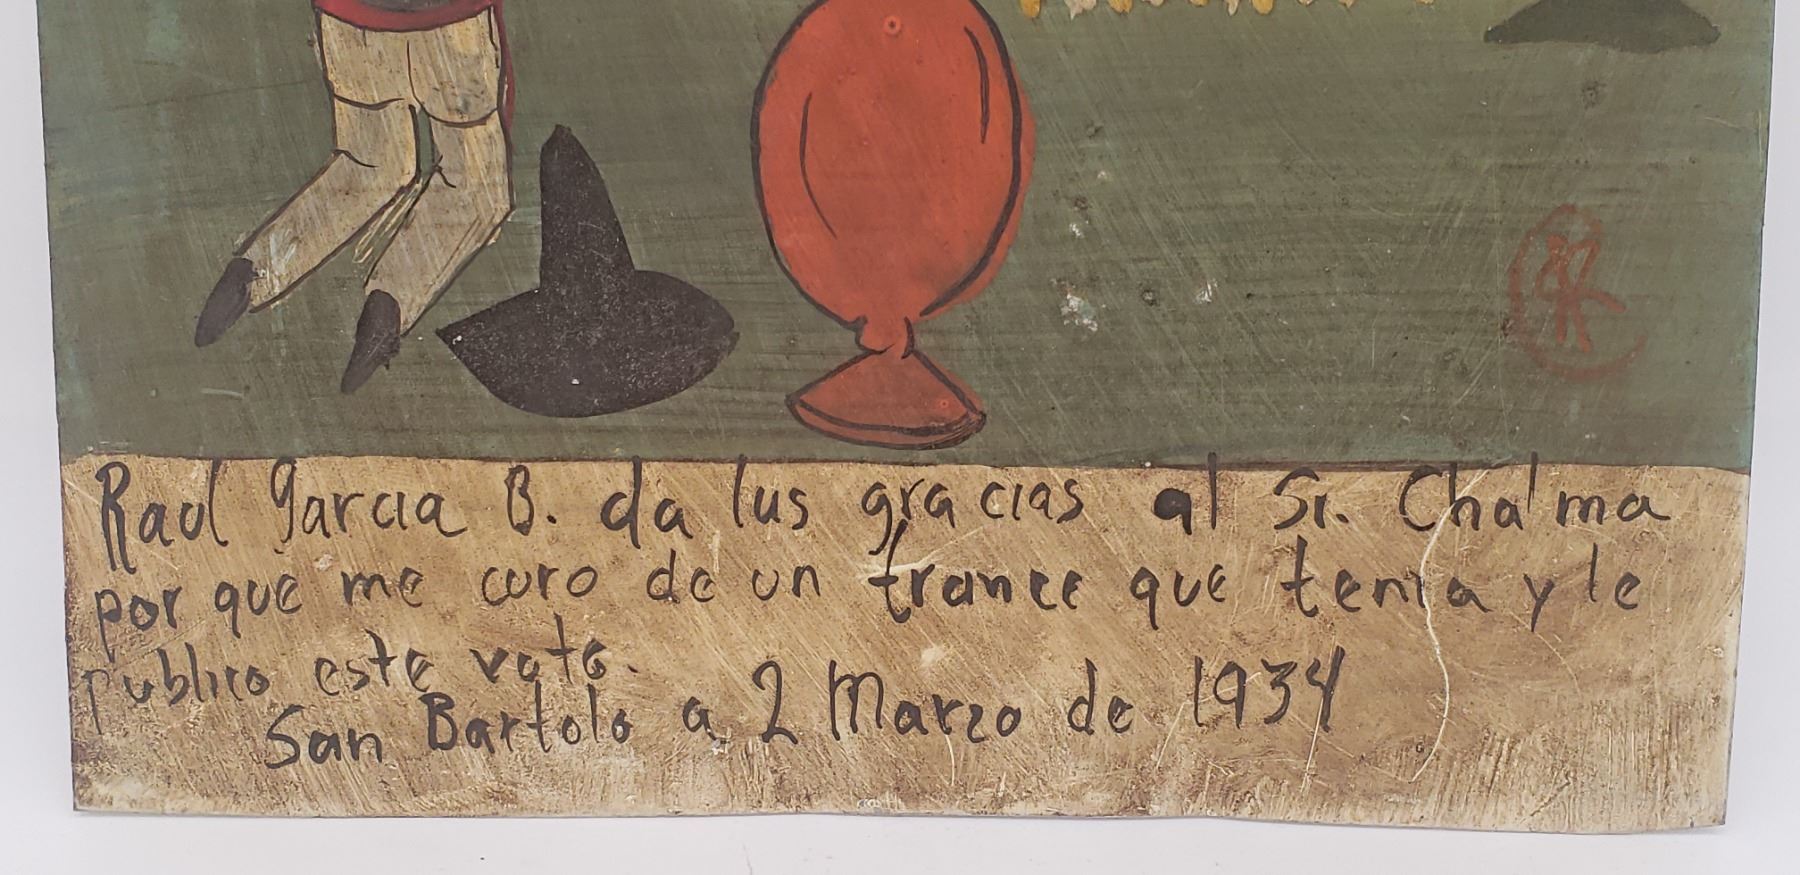 Raul Garcia B. da lus gracias al Sr. Chalma
por que me curo de un trance que tenia y le
publico este voto.
San Bartolo a 2 Marzo de 1934